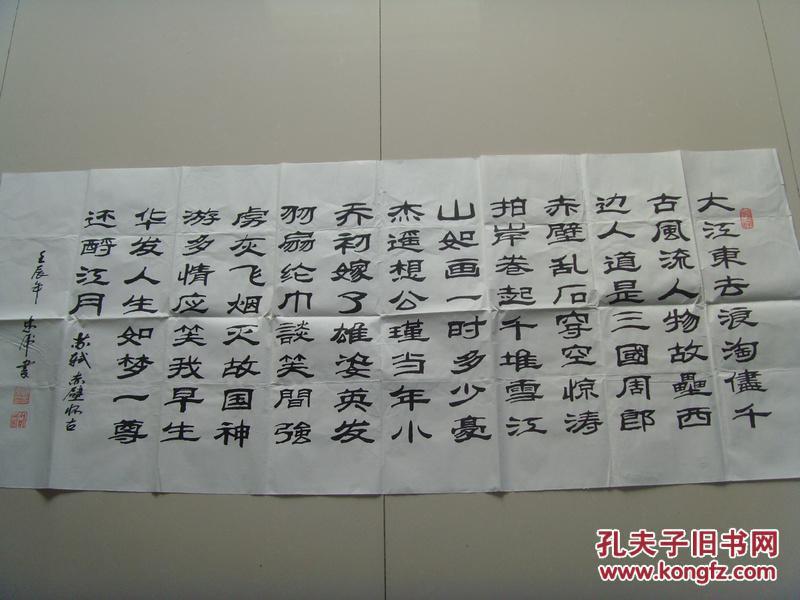 大江東去浪淘儘千
古風流人物故壘西
边人道是三國周郎
赤壁乱石穿空惊涛
拍岸卷起千堆雪江
山如画一时多少豪
杰遥想公瑾当年小
乔初嫁了雄姿英发
羽扇纶巾談笑間強
虏灰飞烟灭故国神
游多情应笑我早生
华发人生如梦一尊
还酹江月
苏轼赤壁怀古
壬辰年
孔夫子旧书网
www.kongfz.com